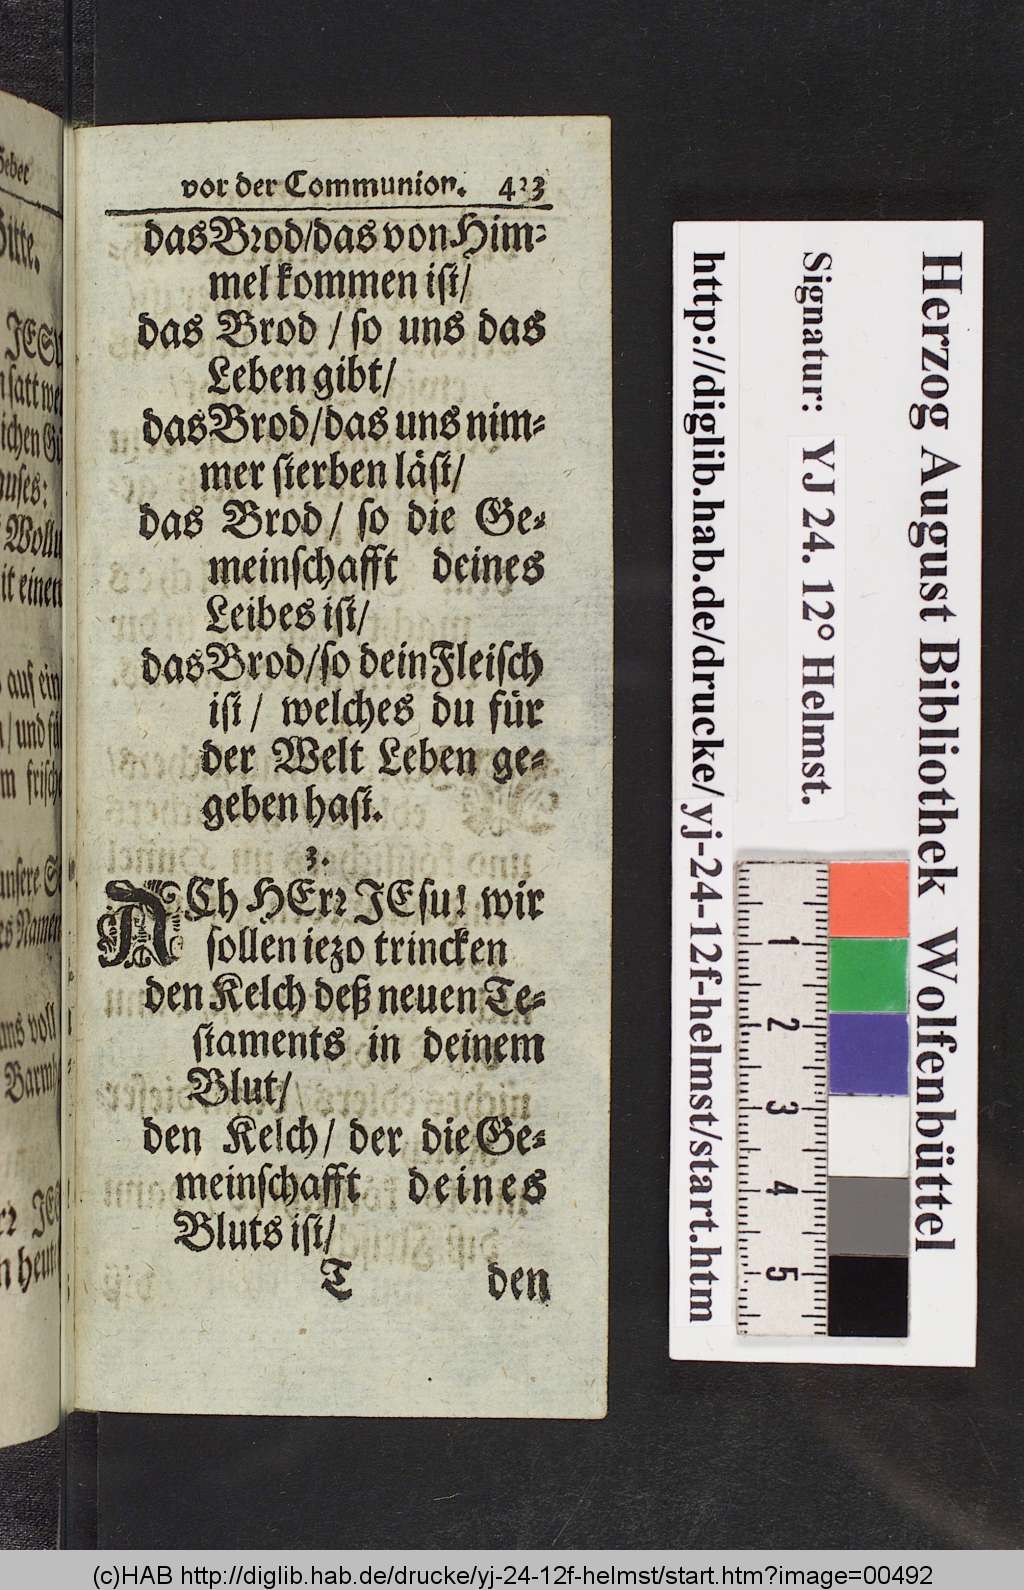 Gebet
Bitte.
JESU
satt we
ichen Gü
auses:
Wollu
it einen
auf ein
/ und fü
m frisch
unsere
es Namen
uns voll
Barmh
JES
n heut
vor der Communion. 423
das Brod/das von Him-
mel kommen ist/
das Brod / so uns das
Leben gibt/
das Brod/das uns nim-
mer sterben läst/
das Brod/ so die Ge-
meinschafft deines
Leibes ist/
das Brod/so dein Fleisch
ist / welches du für
der Welt Leben ge-
geben hast.
3.
ACh HErr JEsu! wir
sollen iezo trincken
den Kelch deß neuen Te-
staments in deinem
Blut/
den Kelch/ der die Ge-
meinschafft deines
Bluts ist/
T den
Herzog August Bibliothek Wolfenbüttel
Signatur: YJ 24. 12° Helmst.
http://diglib.hab.de/drucke/yj-24-12f-helmst/start.htm
1
2
3
4
5
(c)HAB http://diglib.hab.de/drucke/yj-24-12f-helmst/start.htm?image=00492